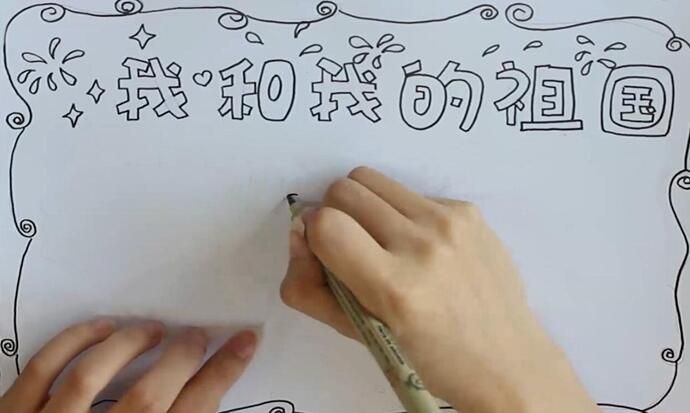 我和我的祖国